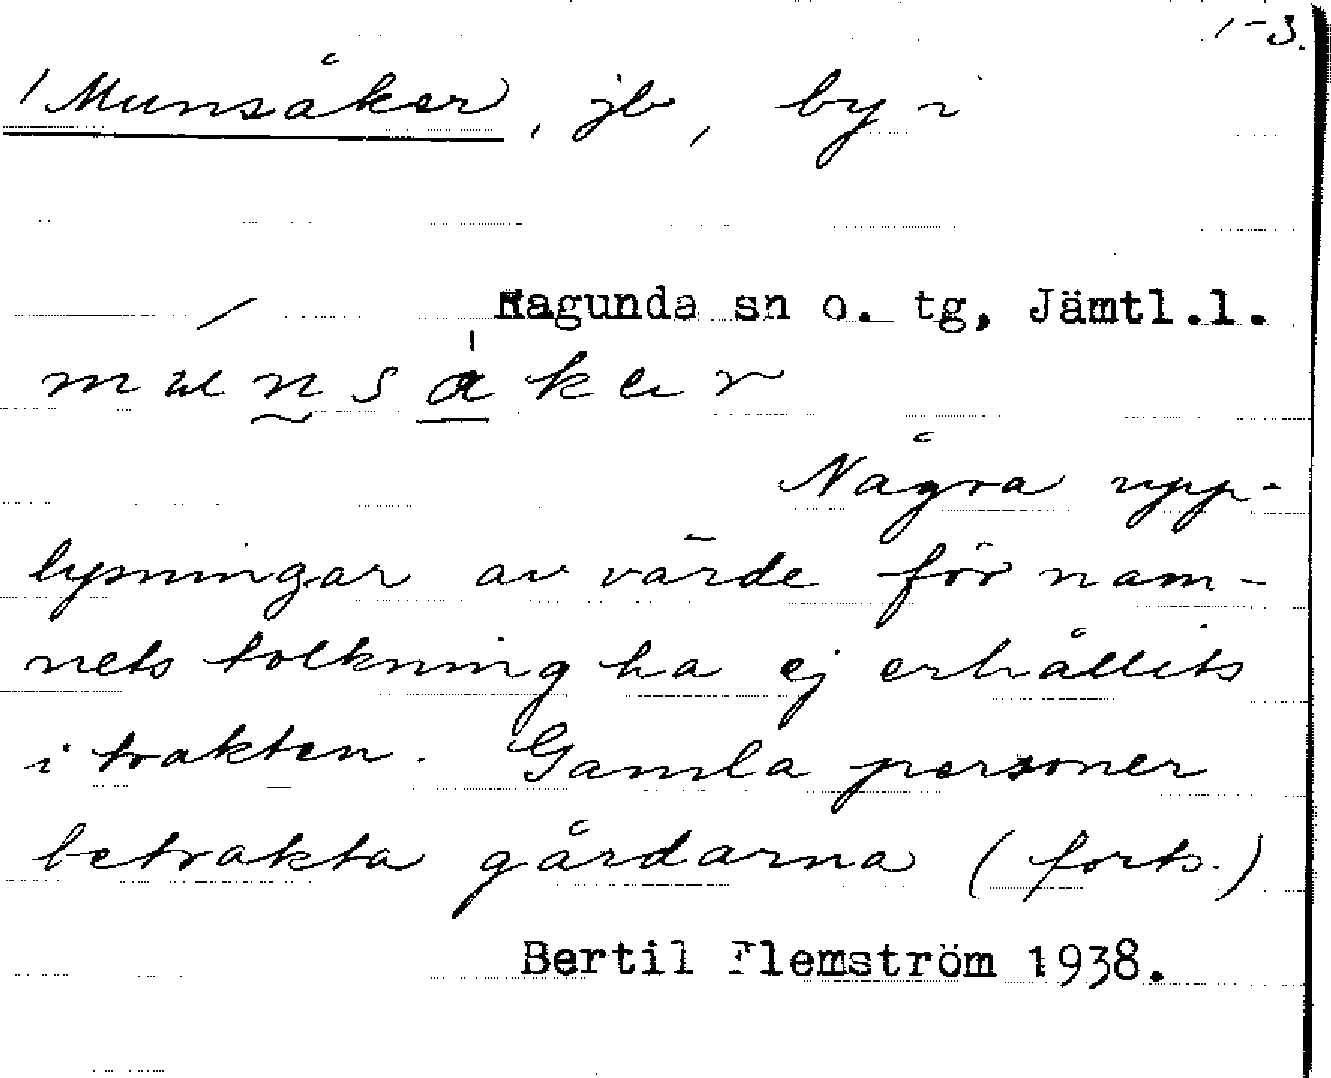 1-3.
/Munsåker, jb, by i
Ragunda sn o. tg, Jämtl.l.
Några upp-
lysningar av värde för nam-
nets tolkning ha ej erhållits
i trakten. Gamla personer
betrakta gårdarna (forts.)
Bertil Flemström 1938.